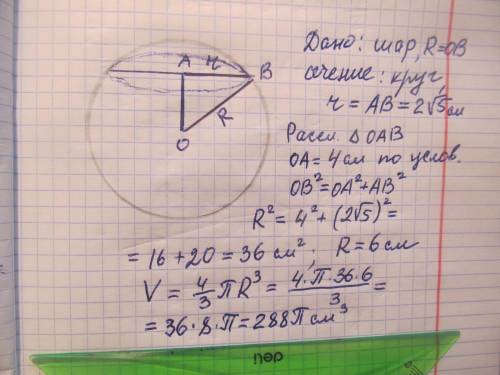 Дано: шар, R=OB
сечение: круг,
r = AB = 2√5 см
Рассм. △OAB
OA = 4 см по услов.
OB² = OA² + AB²
R² = 4² + (2√5)² =
= 16 + 20 = 36 см²; R = 6 см
V = 4/3 πR³ = 4·π·36·6/3 =
= 36·8·π = 288π см³
A r B
R
O